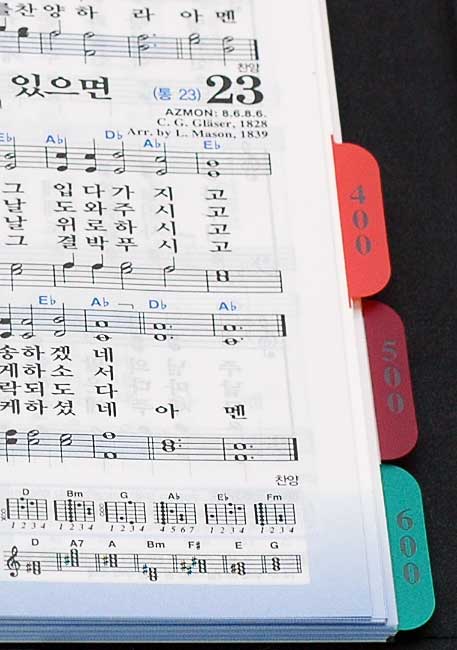 찬양하 라 아멘
찬양
있으면 (통 23) 23
AZMON: 8.6.8.6.
C. G. Gläser, 1828
Arr. by L. Mason, 1839
E♭ A♭ D♭ A♭ E♭
그 입 다 가 지 고
날 도 와 주 시 고
날 위 로 하 시 고
그 결 박 푸 시 고
E♭ A♭ D♭ A♭
송하겠 네
게하소 서
락되도 다
케하셨 네 아 멘
찬양
D Bm G A♭ E♭ Fm
1 2 3 4 1 2 3 4 1 2 3 4 4 5 6 7 1 2 3 4 1 2 3 4
D A7 A Bm F# E G
400
500
600